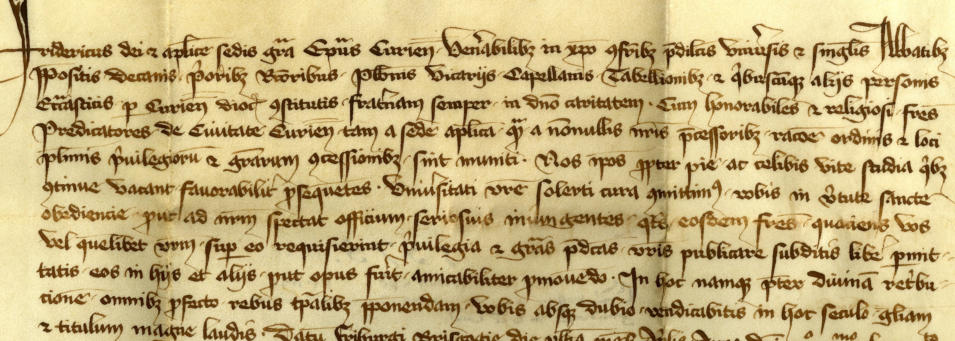 Fridericus dei & aplice sedis gra Epus Curien Venabilibz in xpo qfribz pdilcis Vniusis & singlis Abbatibz
Ppositis Decanis prioribz Rcoribus Plbanis Vicarijs Capellanis Tabellionibz & qbuscuqe alijs personis
Ecciasticis p Curien dioc qstitutis fraternam semper in dno caritatem Cum honorabiles & religiosi fres
Predicatores de Ciuitate Curien tam a sede aplica qm a nonnullis nris pcessoribz racoe ordinis & loci
plimis priuilegiorum & graruam qcessionibz sint muniti Nos ipos ppter pie ac celibis vite studia qbz
qtinue vacant fauorabilit psequetes Vniusitati vre solerti cura qmittim9 vobis in vtute sancte
obediencie put ad nrm spectat officium seriosius iniungentes qte eosdem fres quociens vos
vel quelibet vrm sup eo requisierint priuilegia & gras pdcas vris publicare subditis libe pmit
tatis eos in hijs et alijs put opus fuit amicabiliter pmouedo In hoc namqe pter diuina retbu
cione omnibz pfecto rebus tpalibz pponendam vobis absqe dubio vendicabitis in hoc seculo gliam
& titulum magne laudis Datu Friburgi Brisgaudie die